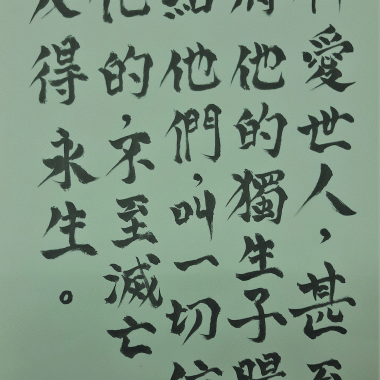 愛世人,甚至
他的獨生子賜
給他們,叫一切信
他的,不至滅亡
得永生。